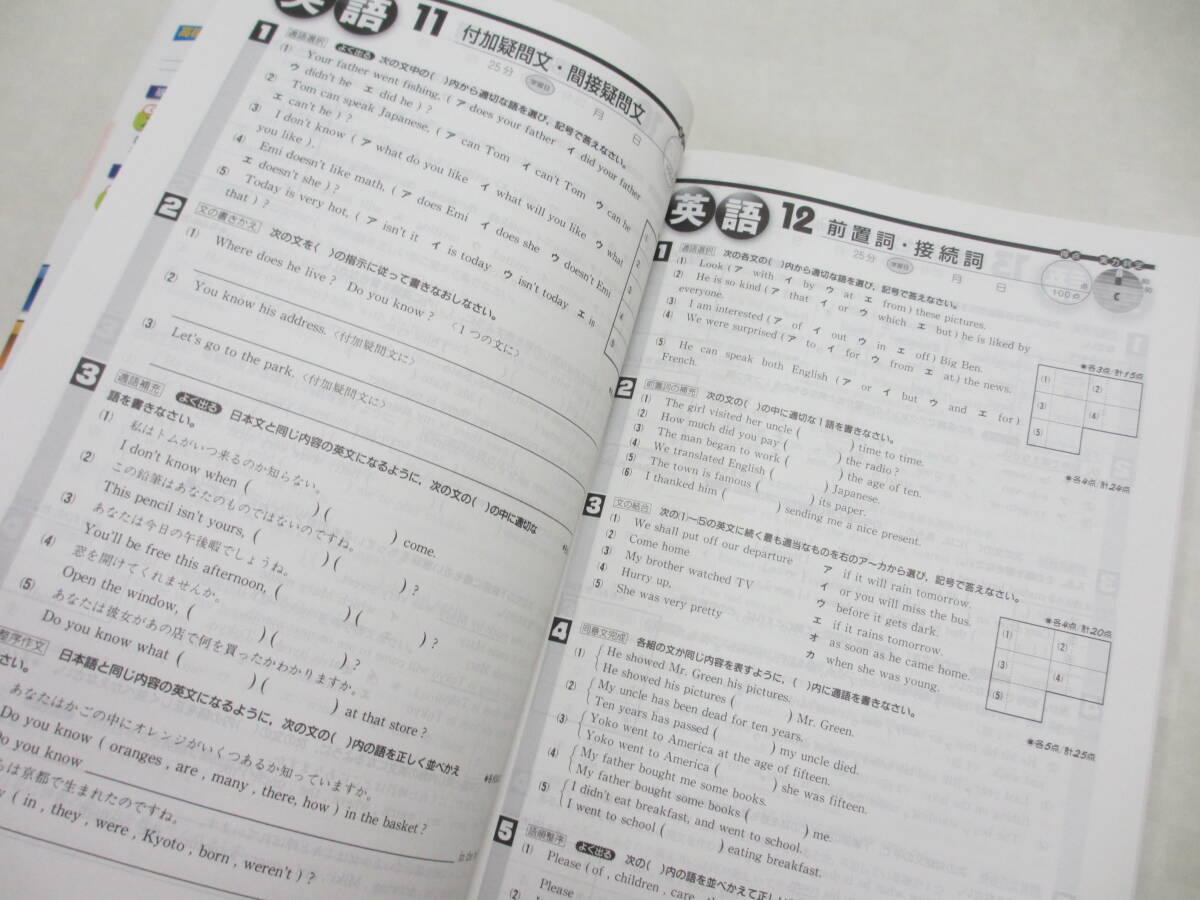 英語 11 付加疑問文・間接疑問文
25分 学習日 月 日
1 適語選択 よく出る 次の文中の( )内から適切な語を選び,記号で答えなさい。
(1) Your father went fishing, ( ア does your father イ did your father
ウ didn't he エ did he ) ?
(2) Tom can speak Japanese, ( ア can Tom イ can't Tom ウ can he
エ can't he ) ?
(3) I don't know ( ア what do you like イ what will you like ウ what
you like ).
(4) Emi doesn't like math, ( ア does Emi イ does she ウ doesn't Emi
エ doesn't she ) ?
(5) Today is very hot, ( ア isn't it イ is today ウ isn't today エ is
that ) ?
2 文の書きかえ 次の文を〈 〉の指示に従って書きなおしなさい。
(1) Where does he live ? Do you know ? 〈1つの文に〉
(2) You know his address. 〈付加疑問文に〉
(3) Let's go to the park. 〈付加疑問文に〉
3 適語補充 よく出る 日本文と同じ内容の英文になるように,次の文の( )の中に適切な
語を書きなさい。
(1) 私はトムがいつ来るのか知らない。
I don't know when ( ) ( ) come.
(2) この鉛筆はあなたのものではないのですね。
This pencil isn't yours, ( ) ( ) ?
(3) あなたは今日の午後暇でしょうね。
You'll be free this afternoon, ( ) ( ) ?
(4) 窓を開けてくれませんか。
Open the window, ( ) ( ) ?
(5) あなたは彼女があの店で何を買ったかわかりますか。
Do you know what ( ) ( ) at that store ?
整序作文 日本語と同じ内容の英文になるように,次の文の( )内の語を正しく並べかえ
なさい。
あなたはかごの中にオレンジがいくつあるか知っていますか。
Do you know ( oranges , are , many , there, how ) in the basket ?
Do you know
らは京都で生まれたのですね。
y ( in , they , were , Kyoto , born , weren't ) ?
英語 12 前置詞・接続詞
25分 学習日 月 日
得点 実力判定
点
100点
C
1 適語選択 次の各文の( )内から適切な語を選び,記号で答えなさい。
(1) Look ( ア with イ by ウ at エ from ) these pictures.
(2) He is so kind ( ア that イ or ウ which エ but ) he is liked by
everyone.
(3) I am interested ( ア of イ out ウ in エ off ) Big Ben.
(4) We were surprised ( ア to イ for ウ from エ at ) the news.
(5) He can speak both English ( ア or イ but ウ and エ for )
French.
★各3点/計15点
(1) (2)
(3) (4)
(5)
2 前置詞の補充 次の文の( )の中に適切な1語を書きなさい。
(1) The girl visited her uncle ( ) time to time.
(2) How much did you pay ( ) the radio ?
(3) The man began to work ( ) the age of ten.
(4) We translated English ( ) Japanese.
(5) The town is famous ( ) its paper.
(6) I thanked him ( ) sending me a nice present.
★各4点/計24点
3 文の結合 次の(1)~(5)の英文に続く最も適当なものを右のア~カから選び,記号で答えなさい。
(1) We shall put off our departure ア if it will rain tomorrow.
(2) Come home イ or you will miss the bus.
(3) My brother watched TV ウ before it gets dark.
(4) Hurry up, エ if it rains tomorrow.
(5) She was very pretty オ as soon as he came home.
カ when she was young.
★各4点/計20点
(1) (2)
(3) (4)
(5)
4 同意文完成 各組の文が同じ内容を表すように,( )内に適語を書きなさい。
(1) He showed Mr. Green his pictures.
He showed his pictures ( ) Mr. Green.
(2) My uncle has been dead for ten years.
Ten years has passed ( ) my uncle died.
(3) Yoko went to America at the age of fifteen.
Yoko went to America ( ) she was fifteen.
(4) My father bought me some books.
My father bought some books ( ) me.
(5) I didn't eat breakfast, and went to school.
I went to school ( ) eating breakfast.
★各5点/計25点
5 語順整序 よく出る 次の( )内の語を並べかえて正し
(1) Please ( of , children , care , the
Please
(2)